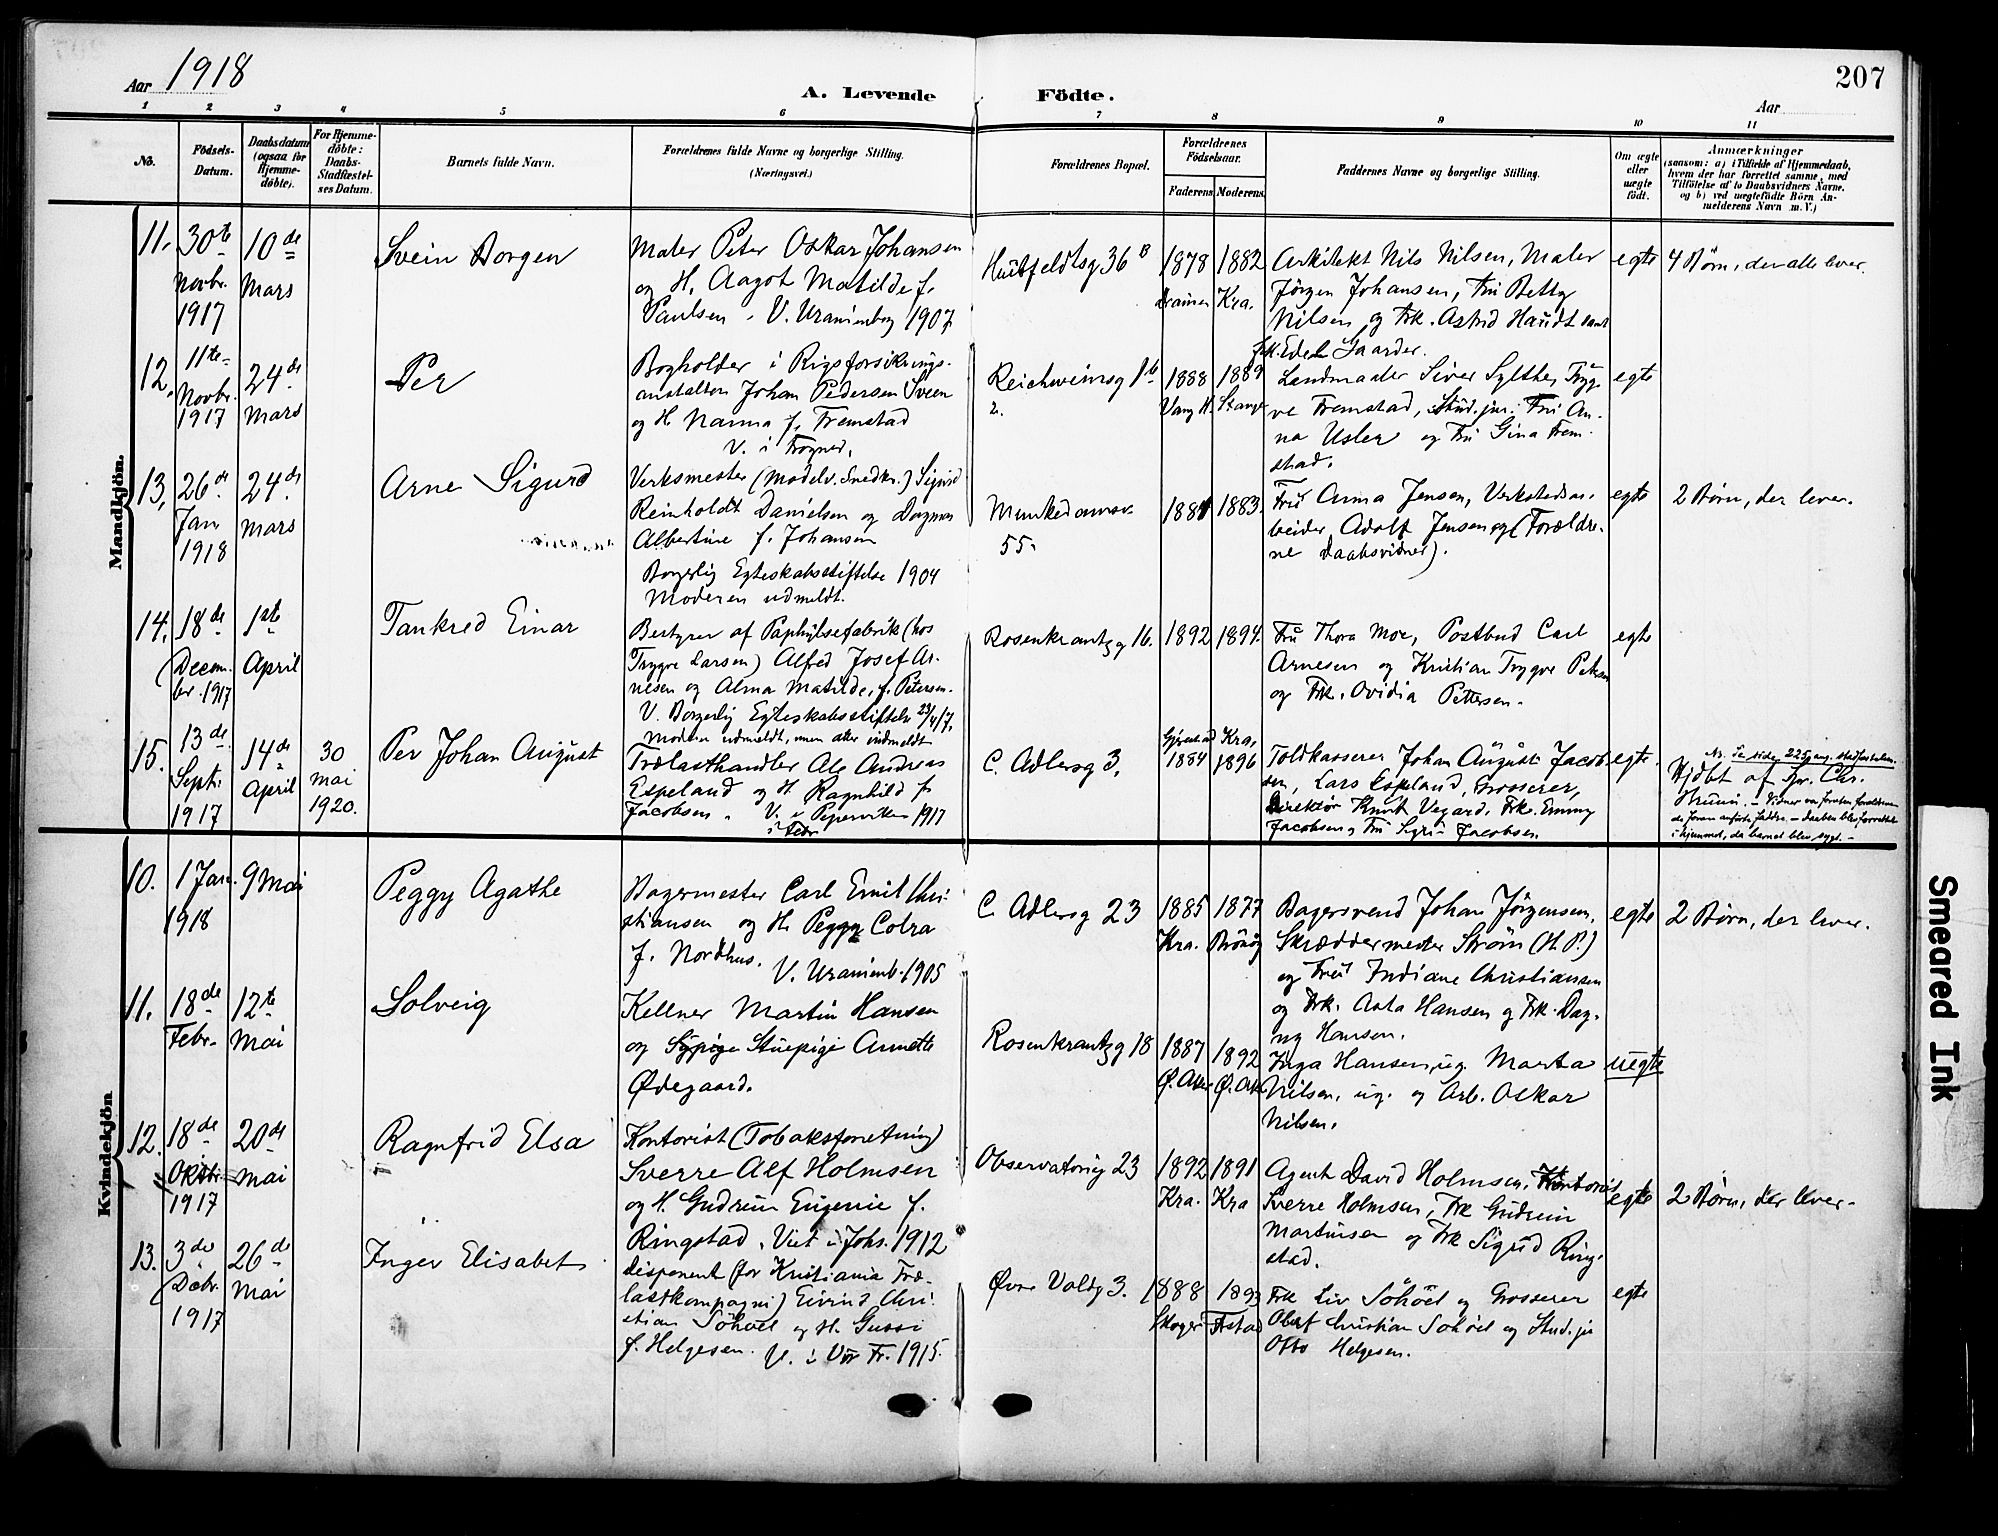 Aar 1918
A. Levende Födte.
207
Aar
1 2 3 4 5 6 7 8 9 10 11
No.
Födsels-
Datum.
Daabsdatum
(ogsaa for
Hjemme-
döbte).
For Hjemme-
döbte:
Daabs-
Stadfæstel-
ses Datum.
Barnets fulde Navn.
Forældrenes fulde Navne og borgerlige Stilling.
(Næringsvei.)
Forældrenes Bopæl.
Forældrenes
Födselsaar.
Faderens
Moderens.
Faddernes Navne og borgerlige Stilling.
Om ægte
eller
uægte
födt.
Anmærkninger
(saasom: a) i Tilfælde af Hjemmedaab,
hvem der har forrettet samme, med
Tilföielse af to Daabsvidners Navne.
og b) ved uægtefödte Börn An-
melderens Navn m. V.)
Mandkjön.
11.
30te
Novbr.
1917
10de
Mars
Svein Dorgen
Maler Peter Oskar Johansen
og H. Aagot Matilde f.
Paulsen. V. Uranienborg 1907
Huitfeldtsg 36 B
1878
Dramen
1882
Kra.
Arkitekt Nils Nilsen, Maler
Jörgen Johansen, Fru Betty
Nilsen og Frk. Astrid Haudt samt
Frk. Edel Gaarder.
egte
4 Börn, der alle lever.
12.
11te
Novbr.
1917
24de
Mars
Per
Bogholder i Rigsforsikrings-
anstalten Johan Pedersen Sveen
og H. Nanna f. Fremstad
V. i Frogner.
Reichweinsg 1b
1888
Vang H.
1889
Stange
Landmaaler Siver Sylthe, Tryg-
ve Fremstad, Stud. jur. Fru An-
na Usler og Fru Gina Frem-
stad.
egte
13,
26de
Jan
1918
24de
Mars
Arne Sigurd
Verksmester (Modelv. Snedkr.) Sigurd
Reinholdt Danielsen og Dagmar
Albertine f. Johansen
Borgerlig Egteskabsstiftelse 1904
Moderen udmeldt.
Munkedamsv.
55.
1881
1883.
Fru Anna Jensen, Verkstedsar-
beider Adolf Jensen og (Forældre-
ne daabsvidner).
egte
2 Börn, der lever.
14.
18de
Decem-
ber. 1917
1ste
April
Tankred Einar
Bestyrer af Paphylsefabrik (hos
Trygve Larsen) Alfred Josef Ar-
nesen og Alma Matilde, f. Petersen.
V. Borgerlig Egteskabsstiftelse 23/4 17.
Moderen udmeldt, men atter indmeldt
Rosenkrantzg 16.
1892
1894.
Fru Thora Moe, Postbud Carl
Arnesen og Kristian Trygve Petersen
og Frk. Ovidia Pettersen.
egte
15.
13de
Septr.
1917
14de
April
30
mai
1920.
Per Johan August
Trælasthandler Ole Andreas
Espeland og H. Ragnhild f.
Jacobsen. V. i Pipervikens 1917
i Febr
C. Adlersg 3.
1884
Kra,
1896
Toldkasserer Johan August Jacob-
sen, Lars Espeland, Grosserer,
Direktör Knut Vegard, Frk. Emmy
Jacobsen og Fru Sigri Jacobsen.
egte.
Se side 225 ang. stadfæstelsen.
Hjdbt af Spr. Chr.
Bruun. – Vidner var foruten forældrene
de foran anförte faddre. – daaben blev forrettet
i hjemmet, da barnet blev sygt. –
Kvindekjön
10.
1 Jan.
1918
9 Mai
Peggy Agathe
Bagermester Carl Emil Chri-
stiansen og H. Peggy Colra
f. Nordhus. V. Uranienb. 1905
C. Adlersg 23
1885
Kra.
1877
Brönög
Bagersvend Johan Jörgensen,
Skræddermester Ström (H. P.)
og Fru Indiane Christiansen
og Frk. Asta Hansen og Frk. Dag-
ny Hansen.
egte
2 Börn, der lever.
11.
18de
Febr.
12te
Mai
Solveig
Kellner Martin Hansen
og Sypige Stuepige Annette
Ødegaard.
Rosenkrantzg 18
1887
Ø. Aker
1892
Ø. Aker
Inga Hansen, ug. Marta
Nilsen, ug. og Arb. Oskar
Nilsen.
uegte
12.
18de
Oktbr.
1917
20de
Mai
Ragnfrid Elsa
Kontorist (Tobaksforretning)
Sverre Alf Holmsen
og H. Gudrun Eugenie f.
Ringstad. Viet i Johs. 1912
Observatorieg 23
1892
Kra.
1891
Kra
Agent David Holmsen, Kontorist
Sverre Holmsen, Frk Gudrun
Martinsen og Frk Sigrid Ring-
stad.
egte
2 Börn, der lever-
13.
3de
Debr.
1917
26de
Mai
Inger Elisabet
Disponent (for Kristiania Træ-
lastkompagni) Eivind Chri-
stian Söhoel og H. Gussi
f. Helgesen. V. i Vor Fr. 1915.
Øvre Voldg 3.
1888
Skoger
1893
Frstad
Frk Liv Söhoel og Grosserer
Olaf Christian Söhoel og Stud. jur
Otto Helgesen.
egte
Smeared Ink